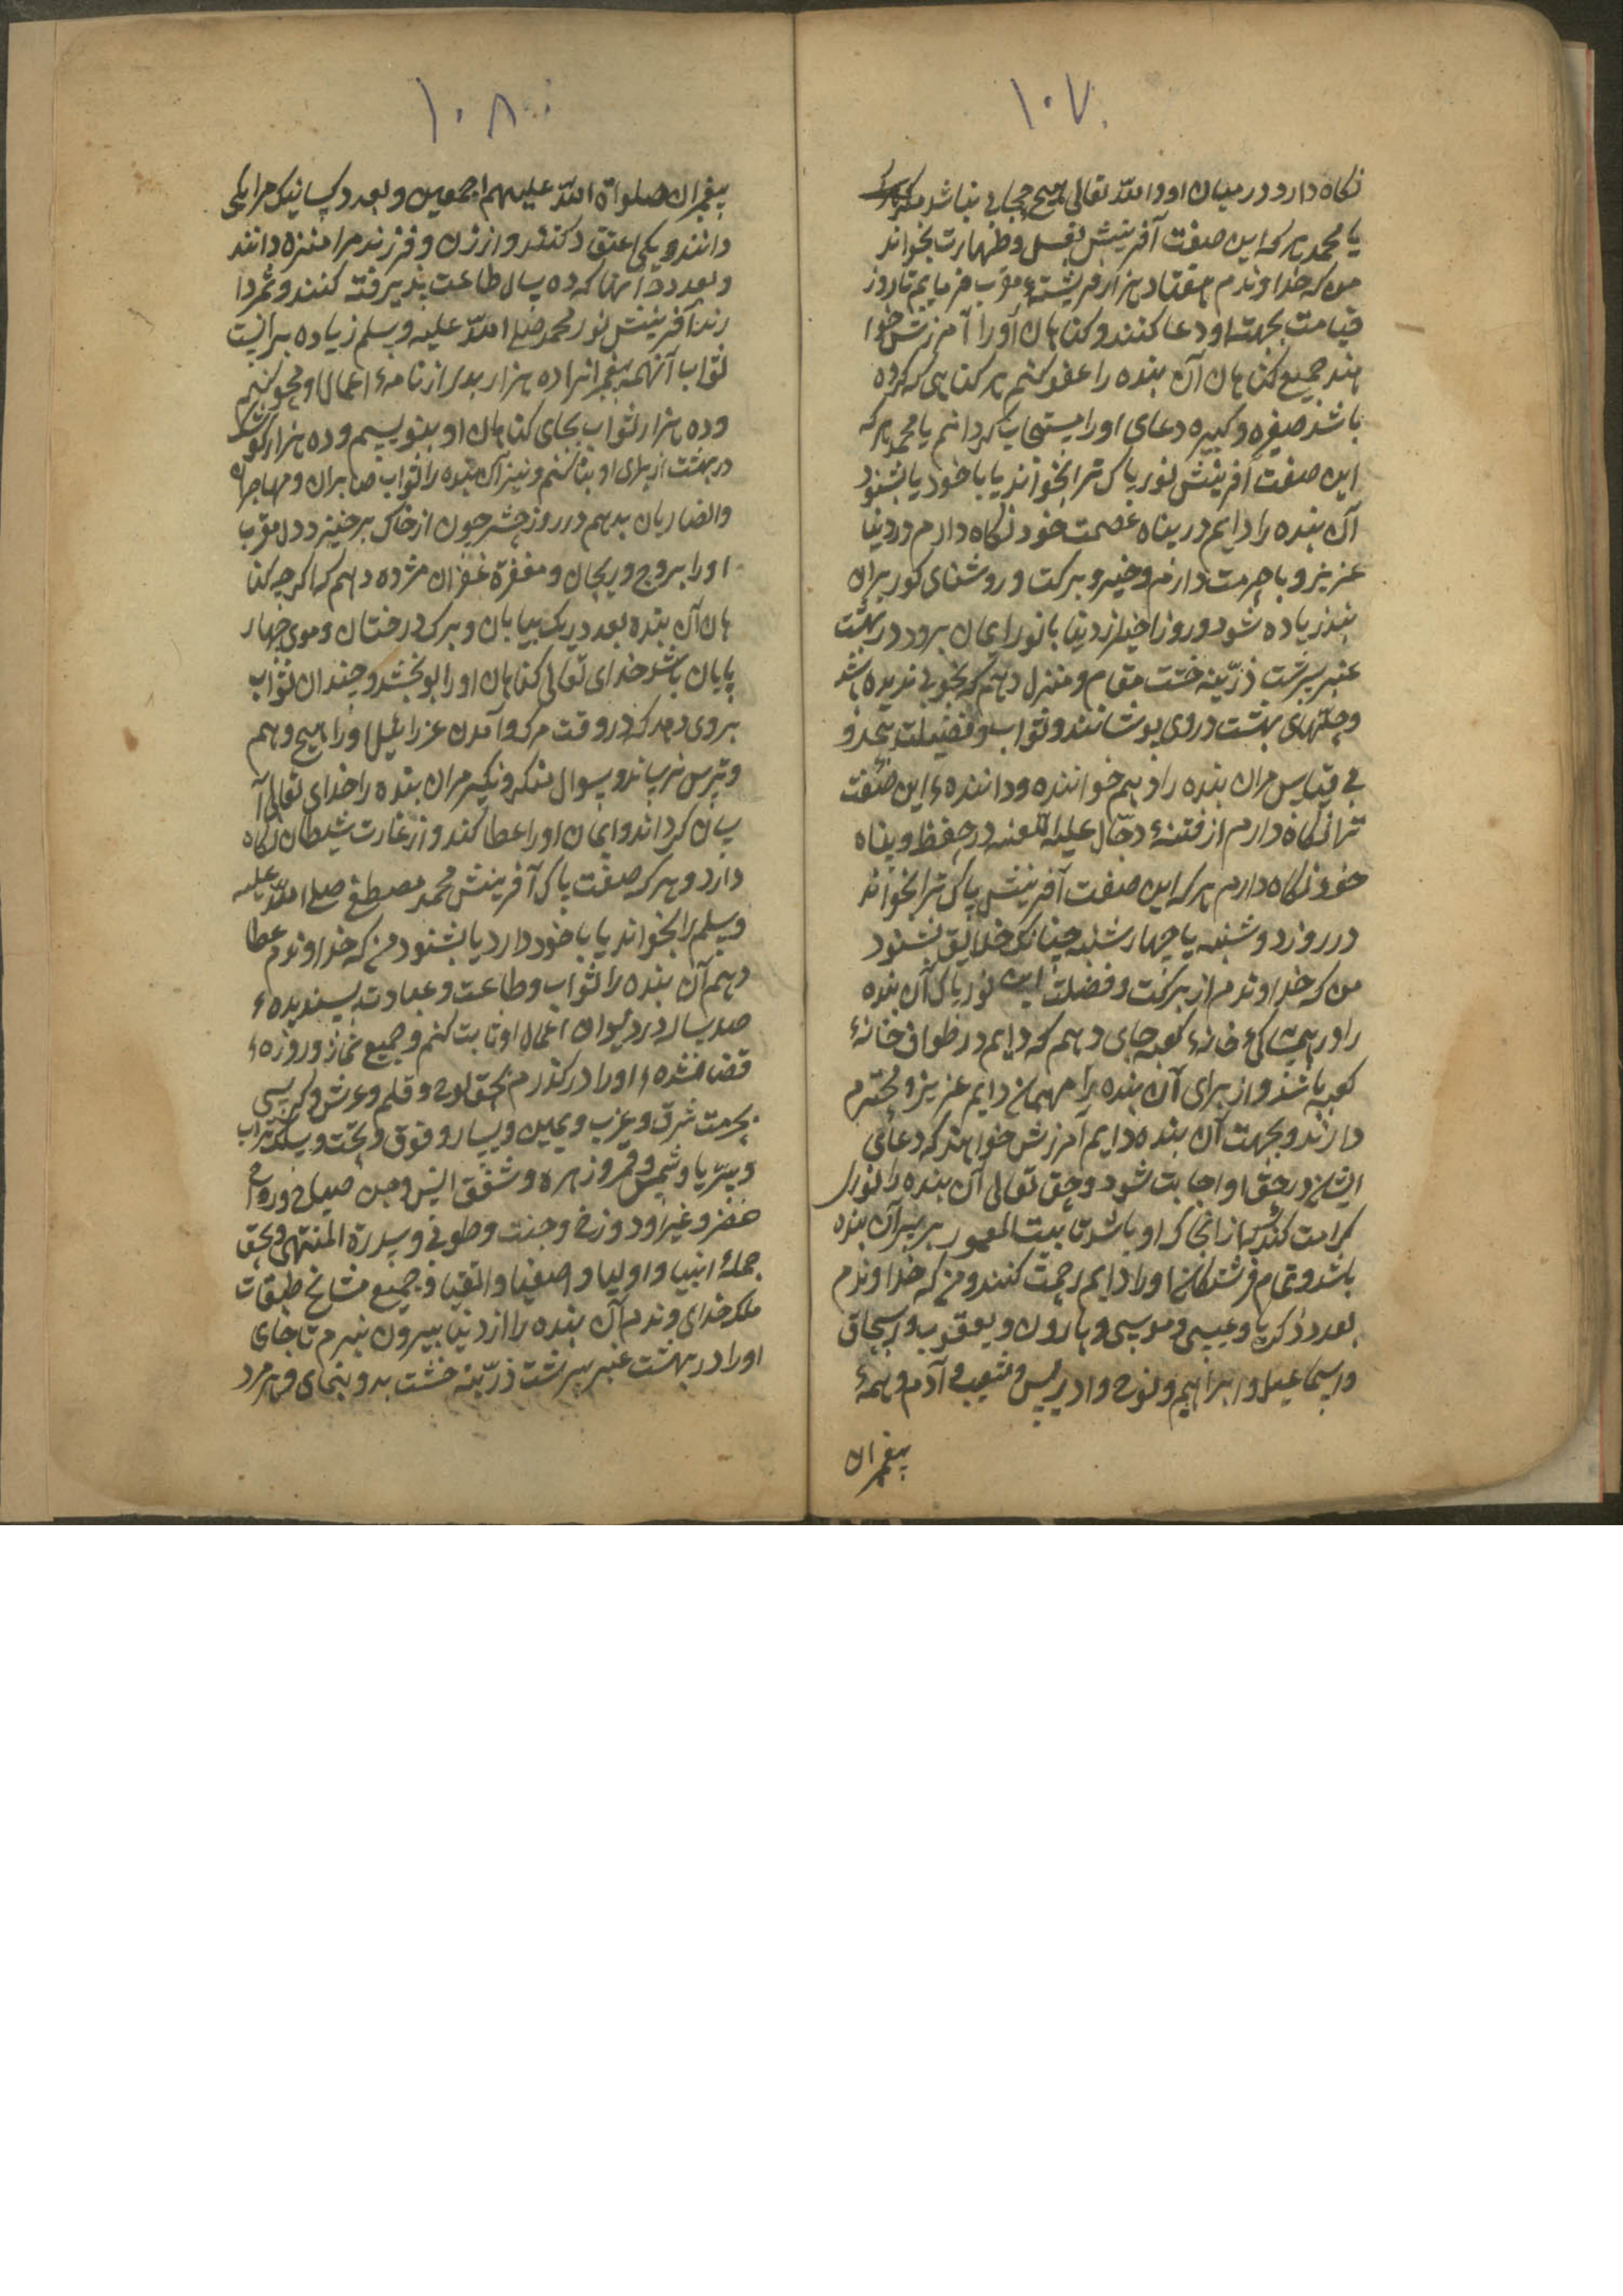 ۱۰۷
نکاه دارد در میان او و الله تعالی هیچ حجابی نباشد
یا محمد هر که این صفت آفرینش بغسل وطهارت بخواند
من که خداوندم هفتاد هزار فریشتهٔ مقرب فرمایم تا روز
قیامت بجهت او دعا کنند و کناهان او را آمرزش خوا
هند جمیع کناهان آن بنده را عفو کنم هر کناهی که کرده
باشد صغیره و کبیره دعای او را مستجاب کردانم یا محمد هر که
این صفت آفرینش نور پاک ترا بخواند یا با خود یا بشنود
آن بنده را دایم در پناه عصمت خود نکاه دارم و در دنیا
عزیز و با حرمت دارم و خیر و برکت و روشنای کور بران
بنده زیاده شود و روز آخر از دنیا با نور ایمان برود در بهشت
عنبر سرشت زرّینه خشت مقام و منزل دهم که بخوبی ندیده باشد
و حلّهای بهشت در وی بوشانند و ثواب و فضیلت بیحد و
بی قیاس مران بنده را دهم خواننده و دانندهٔ این صفت
ترا نکاه دارم از فتنهٔ دجّال علیه اللعنه در حفظ و پناه
خود نکاه دارم هر که این صفت آفرینش پاک ترا بخواند
در روز دوشنبه یا چهارشنبه چنانکه خلایق بشنود
من که خداوندم از برکت و فضلت این نور پاک آن بنده
را در خانهٔ کعبه جای دهم که دایم در طواف خانهٔ
کعبه باشد و از برای آن بنده را مهمان دایم عزیز و محترم
دارند و بجهت آن بنده دایم آمرزش خواهند که دعای
ایشان در حق او اجابت شود و حق تعالی آن بنده را نور
کرامت کند پس از انجا که او باشد تا بیت المعمور بر سر آن بنده
باشد و تمام فرشتکان او را دایم رحمت کنند و من که خداوندم
بعدد ذکریا و عیسی و موسی و هارون و یعقوب و اسحاق
و اسماعیل و ابراهیم و نوح و ادریس و شعیب و آدم و همهٔ
پیغمبران
۱۰۸
پیغمبران صلواة الله علیهم اجمعین و بعدد کسانیکه مرا یکی
دانند و یکی اعتقاد کنند و از زن و فرزند مرا منزه دانند
و بعدد انها که ده سال طاعت پذیرفته کنند و ثمر دا
رند آفرینش نور محمد صلی الله علیه وسلم زیاده برانیست
ثواب آنهمه پیغمبرانرا ده هزار بدی از نامهٔ اعمال او محو کنم
و ده هزار ثواب بجای کناهان او بنویسم و ده هزار کوشک
در بهشت از برای او بنا کنم و نیز آن بنده را ثواب صابران و مهاجران
و انصاریان بدهم در روز حشر چون از خاک برخیزد
او را بروح و ریحان و مغفرة غفران مژده دهم که اکر چه کنا
هان آن بنده بعدد ریک بیابان و برک درختان و موی چهار
پایان باشد خدای تعالی کناهان او را بوبخشد و چندان ثواب
بروی دهد که در وقت مرک و آمدن عزرائیل او را هیچ وهم
و ترس نرساند و سوال منکر و نکیر مران بنده را خدای تعالی آ
سان کرداند و ایمان او را عطا کند و از غارت شیطان نکاه
دارد و هر که صفت پاک آفرینش محمد مصطفی صلی الله علیه
وسلم را بخواند یا با خود دارد یا بشنود من که خداوندم عطا
دهم آن بنده را ثواب و طاعت و عبادت پسندیدهٔ
صد سال در دیوان اعمال او ثابت کنم و جمیع نماز و روزهٔ
قضا شدهٔ او را درکذرم بحق لوح و قلم و عرش و کرسی
بحرمت شرق و غرب و یمین و یسار و فوق و تحت و
و ثریا و شمس و قمر و زهره و شفق انس و جن صباح و رواح
و دوزخ و جنت و طوبی و سدرة المنتهی و بحق
جملهٔ انبیا و اولیا و اصفیا و اتقیا و جمیع مشایخ طبقات
ملکه خدای وندم آن بنده را از دنیا بیرون نبرم تا جای
او را در بهشت عنبر سرشت زرّینه خشت بدو بنمای و هر مرد